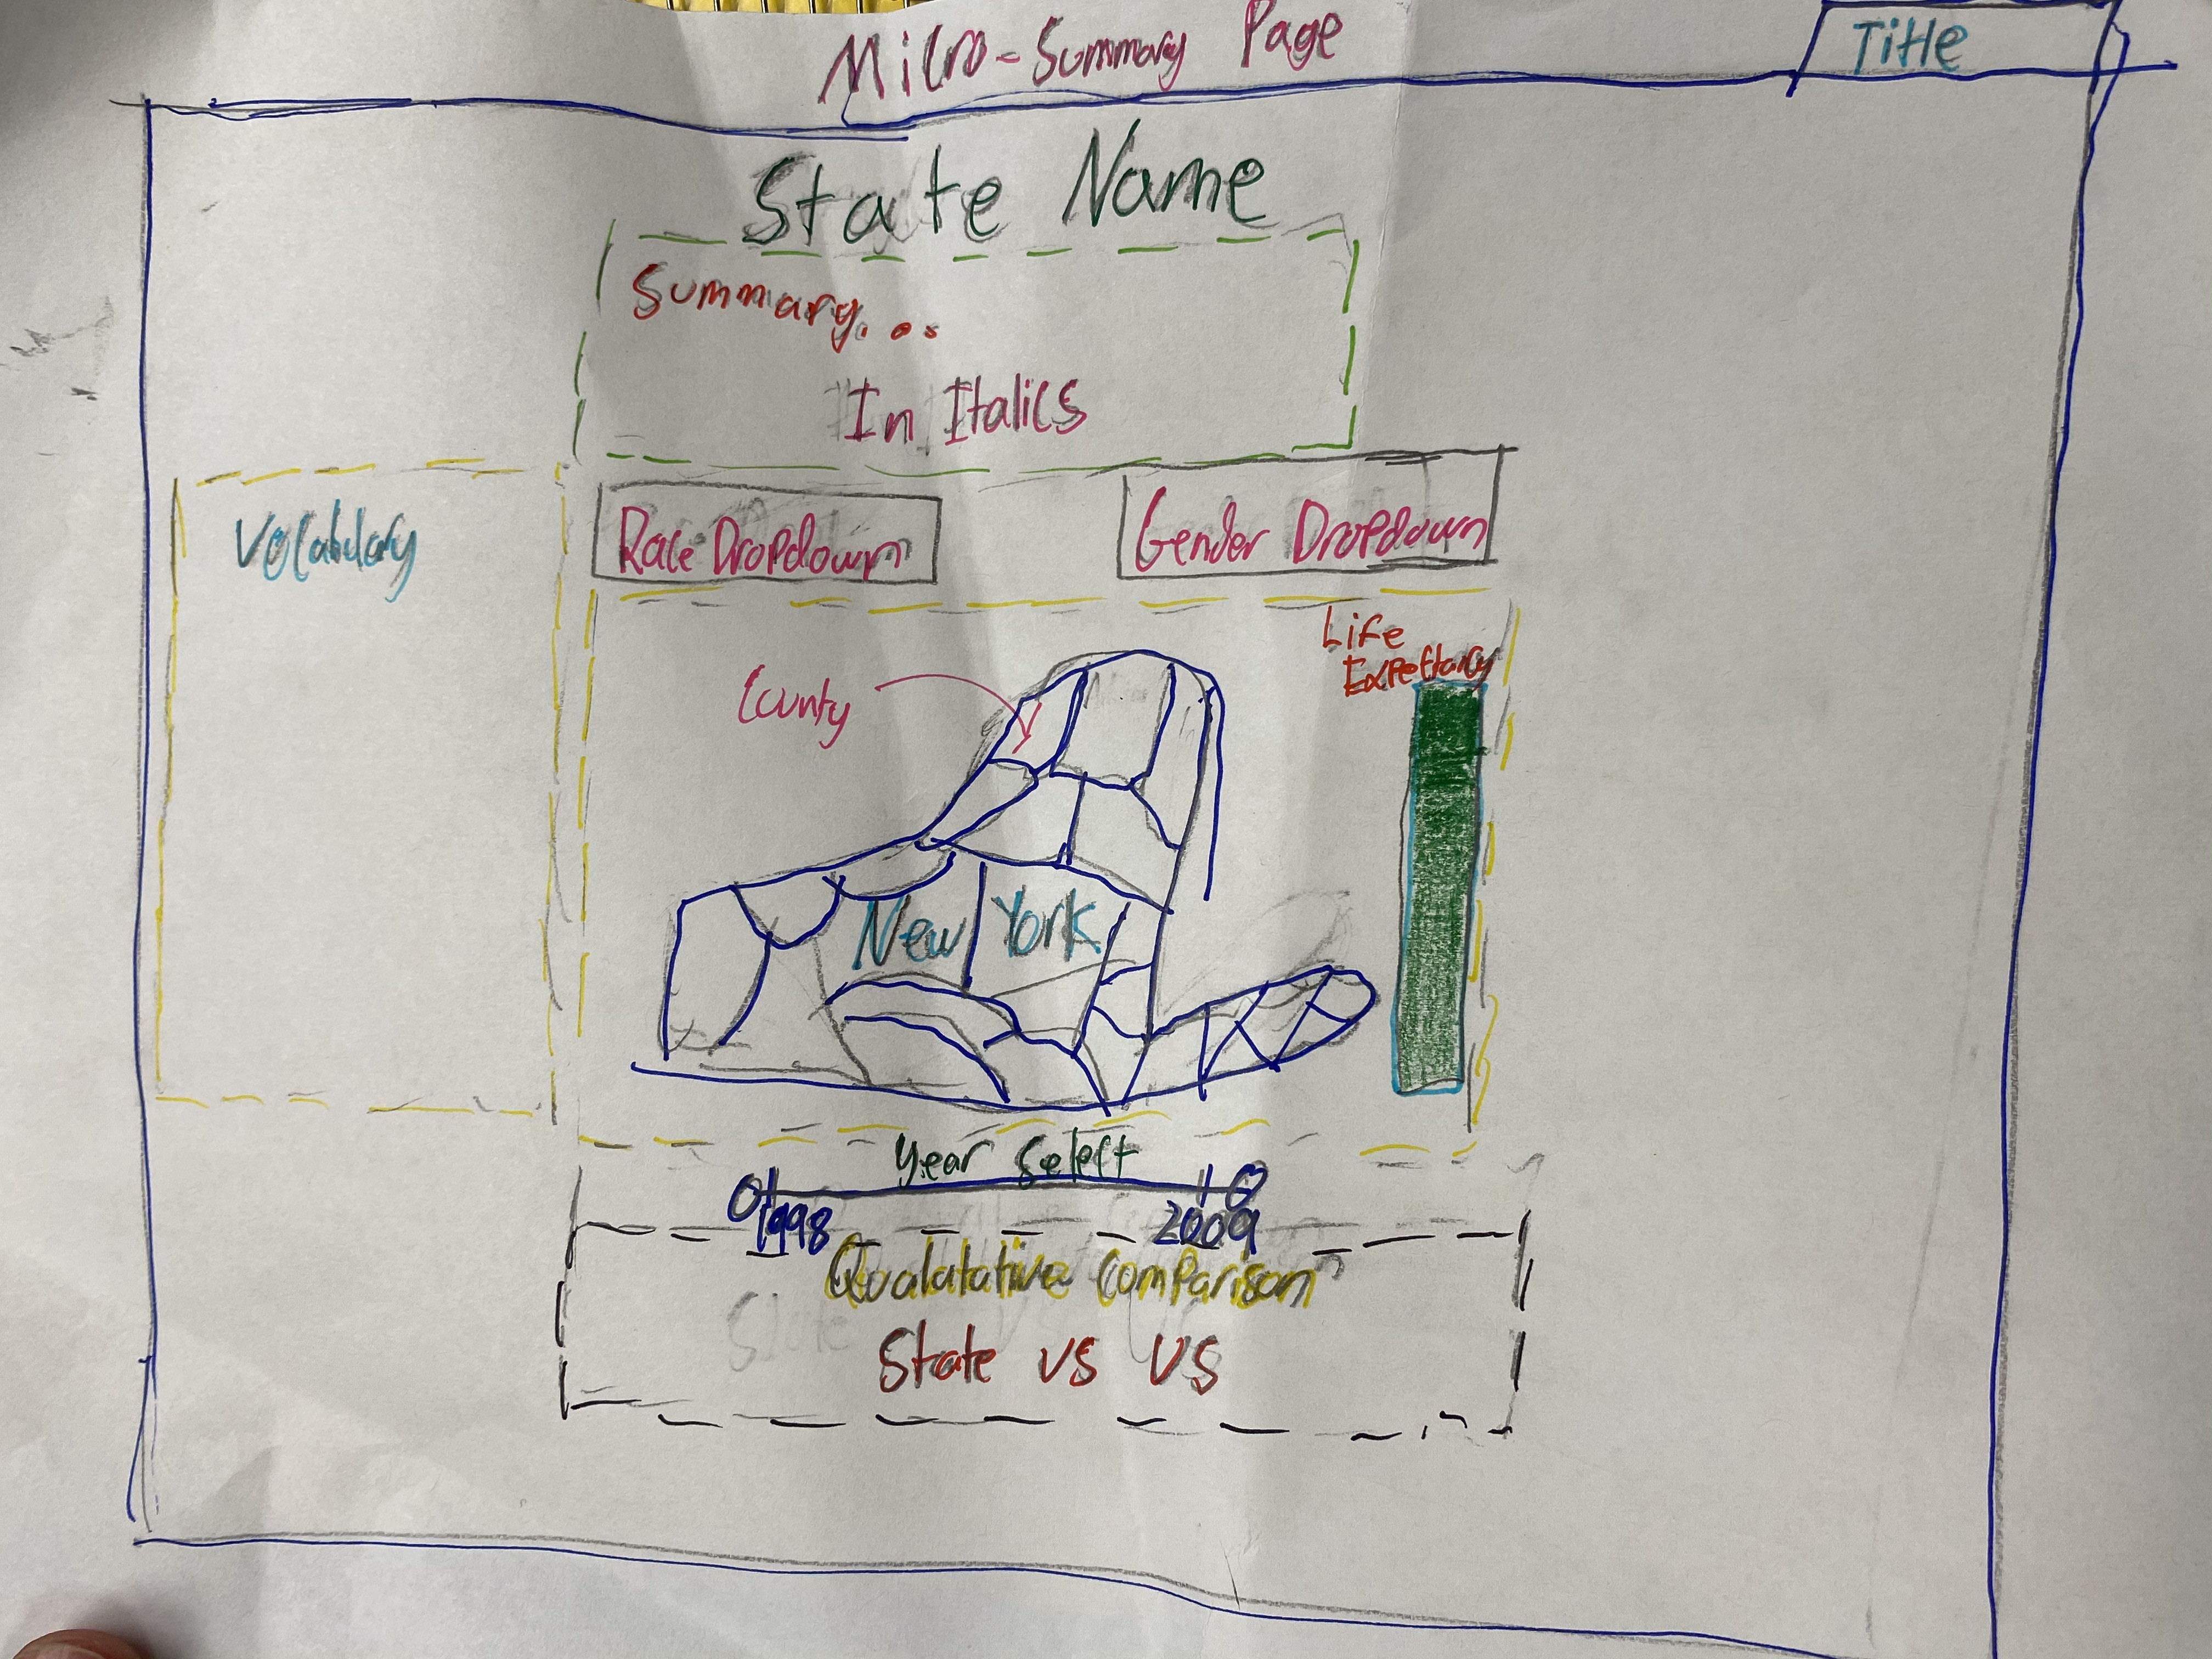 Micro-Summary Page
Title
State Name
Summary...
In Italics
Vocabulary
Race Dropdown
Gender Dropdown
Life
Expectancy
County
New York
Year Select
1998
2009
Qualatative Comparison
State vs US